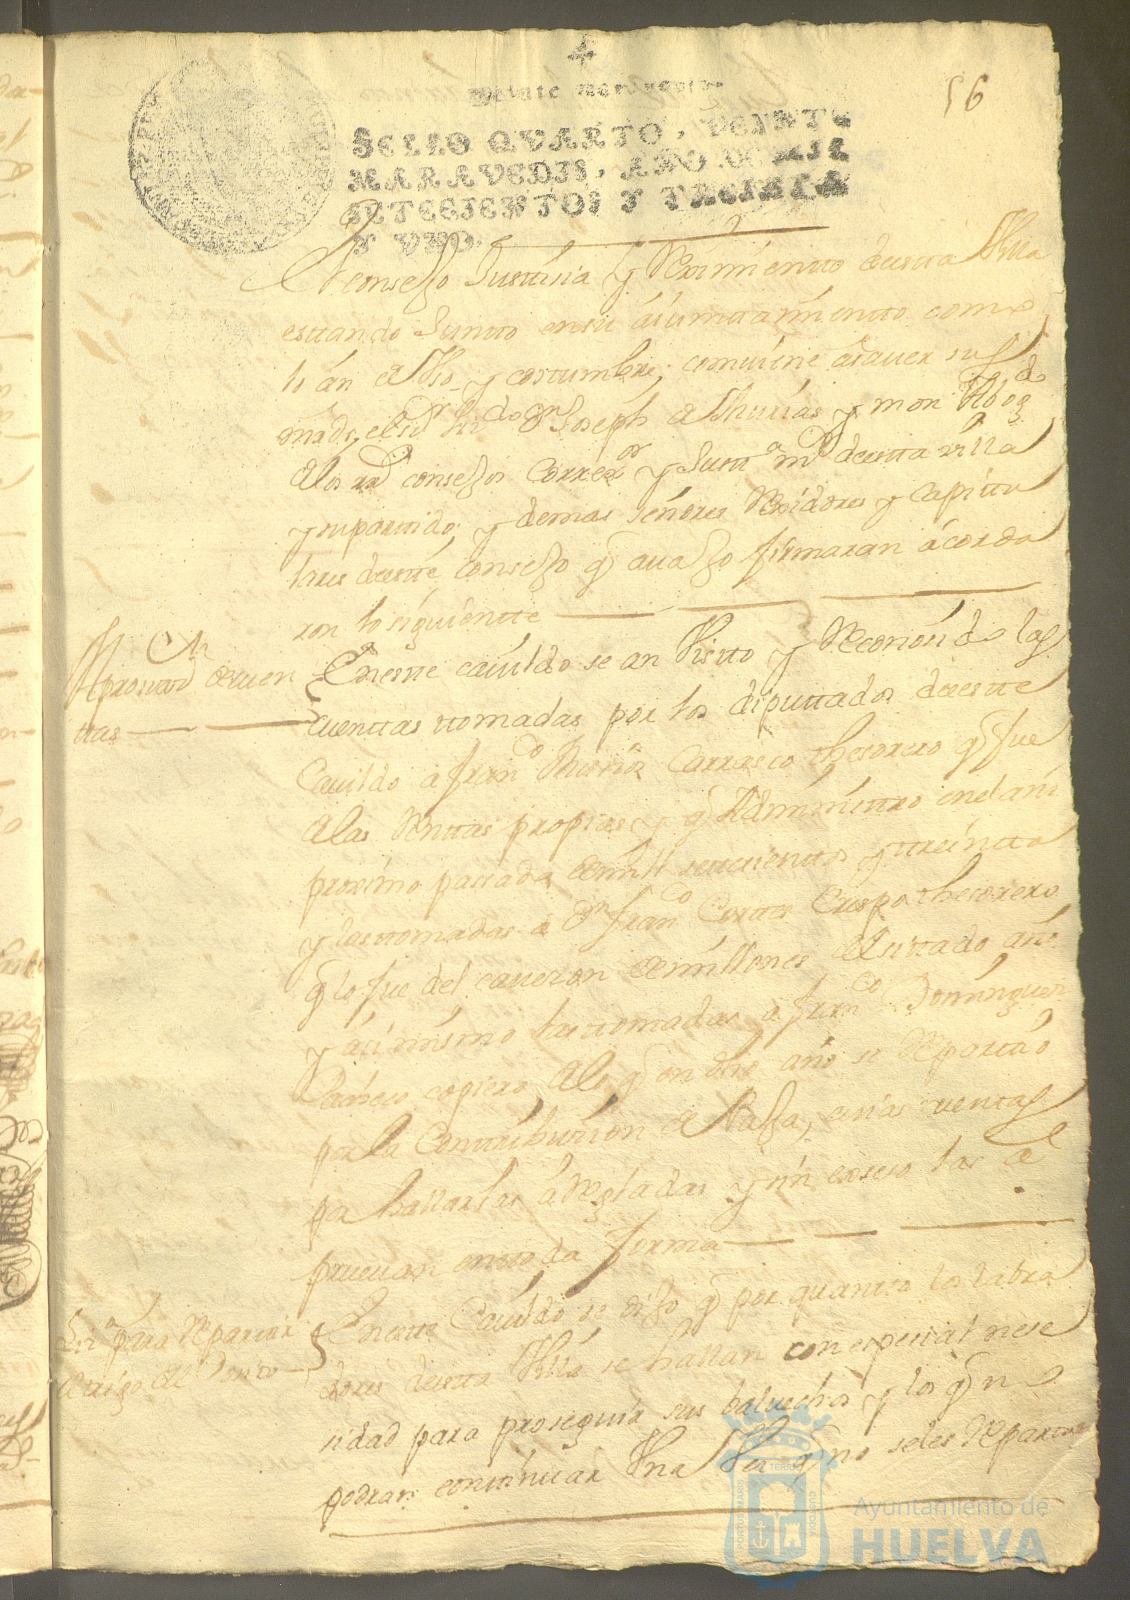 56
Veinte maravedis
SELLO QVARTO, VEINTE
MARAVEDIS, AÑO DE MIL
SETECIENTOS Y TREINTA
Y VNO.
El consejo Justizia y Reximientto de estta Villa
esttando Juntto en su aiuntamientto como
lo an de Vso y costumbre, comviene a saver sus
mds el sr Lizdo Dn Joseph de y mon Abogdo
de los Rs consejos Correxor y Justa mor de estta villa
y su parttido, y demas señores Rexidores y capittu
lares de estte consejo q avajo firmaran acorda
ron lo siguientte
Aprovon de cuen
ttas
En estte cavildo se an Vistto y Reconosido las
cuenttas ttomadas por los diputtados de estte
Cavildo a Franco Muñoz Carrasco thesorero q fue
de las Renttas propias y q Administtro en el año
proximo passado de mill settecienttos y ttreintta
y las ttomadas a Dn Franco Corttes Crespo thesorero
q lo fue del caveson de millones de cittado año
y asimismo las ttomadas a Franco Dominguez
Pacheco copiero de lo q en dho año se Repartio
pa la Conttribuzion de Paja, cuias cuenttas
pa hallarlas arregladas y sin exseso las a
pruevan en ttoda forma
Lizа para Reparttir
el trigo del Positto
En estte Cavildo se dijo q por quantto los labra
dores de estta Villa se hallan con espesial nese
sidad para proseguir sus balvechos y los q no
podran conttinuar Vna Vez q no se les Repartta
Ayuntamiento de
HUELVA